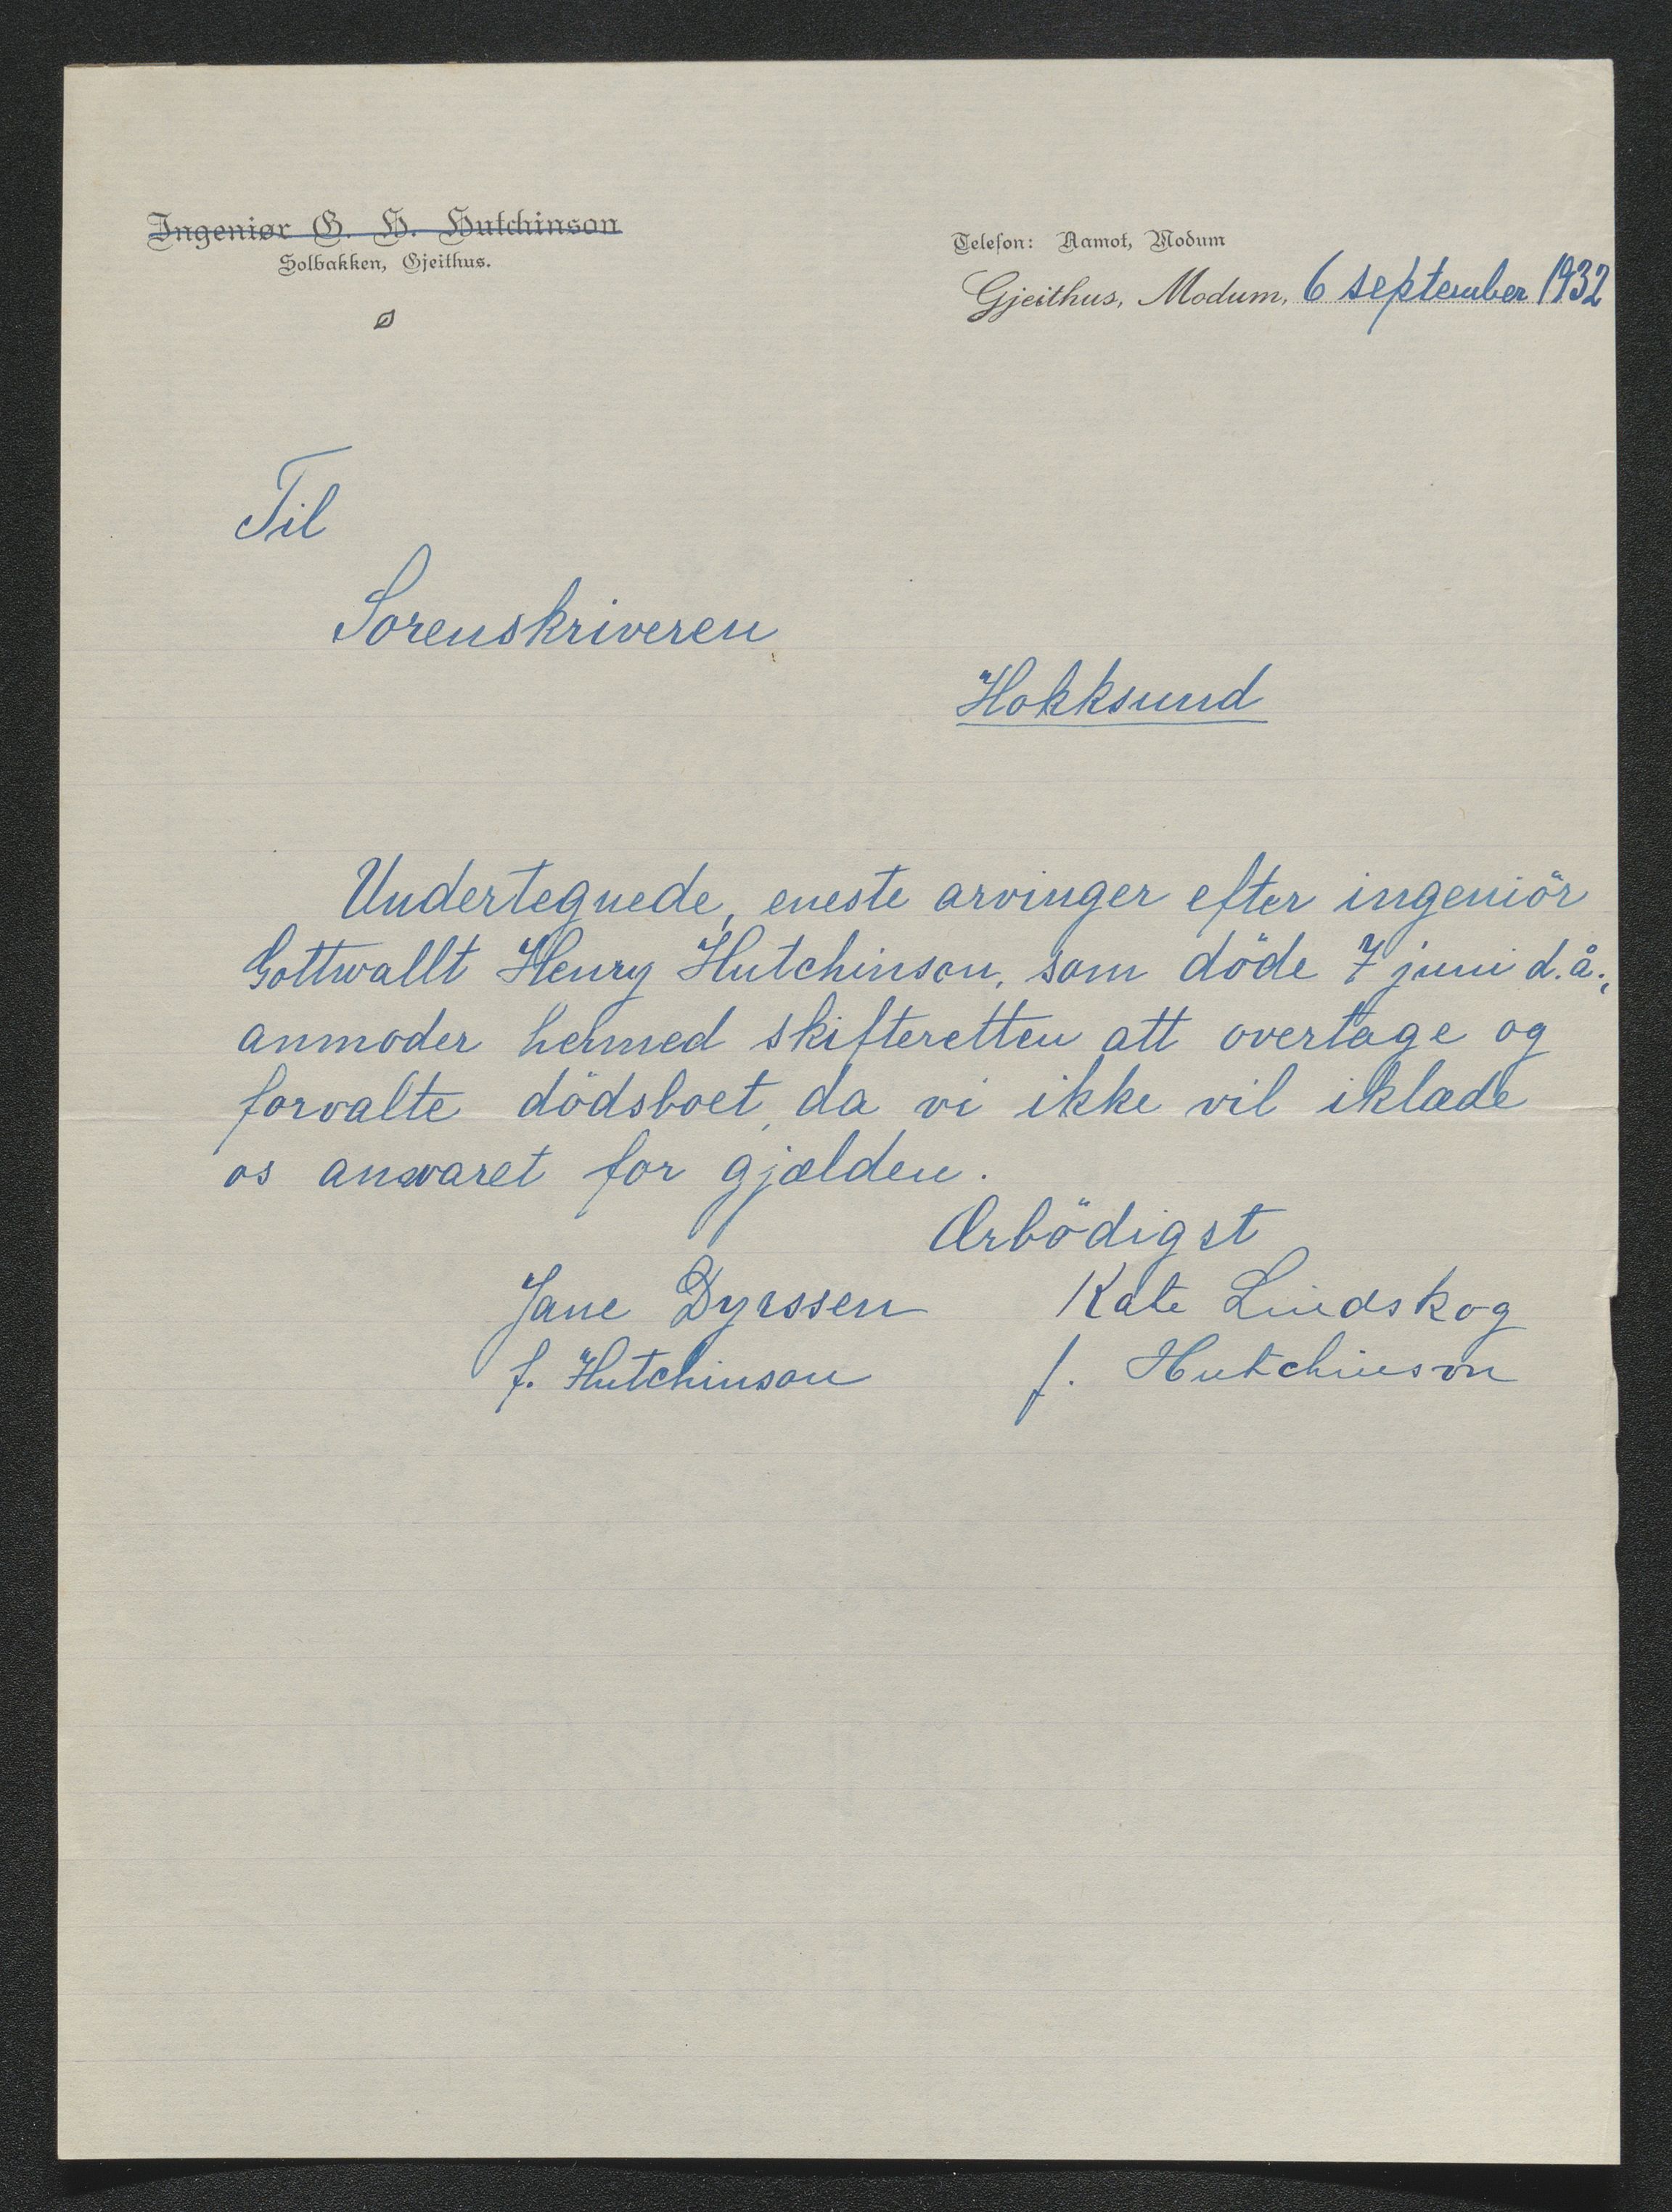 Ingeniør G. H. Hutchinson
Solbakken, Gjeithus.
Telefon: Aamot, Modum
Gjeithus, Modum, 6 september 1932
Til
Sorenskriveren
Hokksund
Undertegnede, eneste arvinger efter ingeniör
Gottwallt Henry Hutchinson, som döde 7 juni d.å.,
anmoder hermed skifteretten att overtage og
forvalte dödsboet, da vi ikke vil iklæde
os ansvaret for gjælden.
Ærbödigst
Jane Dyrssen Kate Lindskog
f. Hutchinson f. Hutchinson